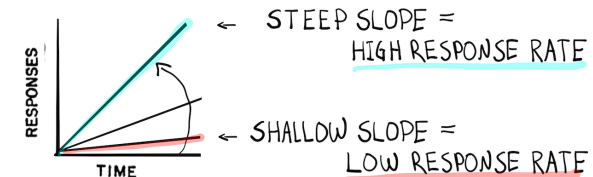 RESPONSES
TIME
← STEEP SLOPE =
HIGH RESPONSE RATE
← SHALLOW SLOPE =
LOW RESPONSE RATE